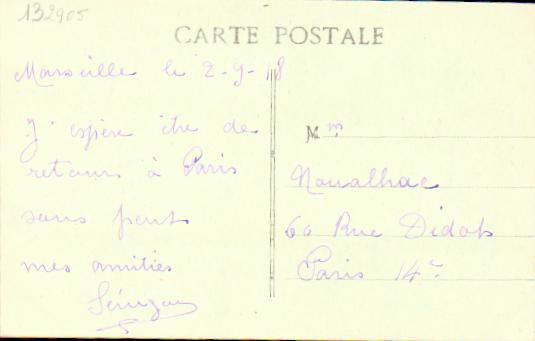 132905
CARTE POSTALE
Marseille le 2-9-18
J'espère être de
retour à Paris
sans peut
mes amitiés
Mm
Noualhac
60 Rue Didot
Paris 14e